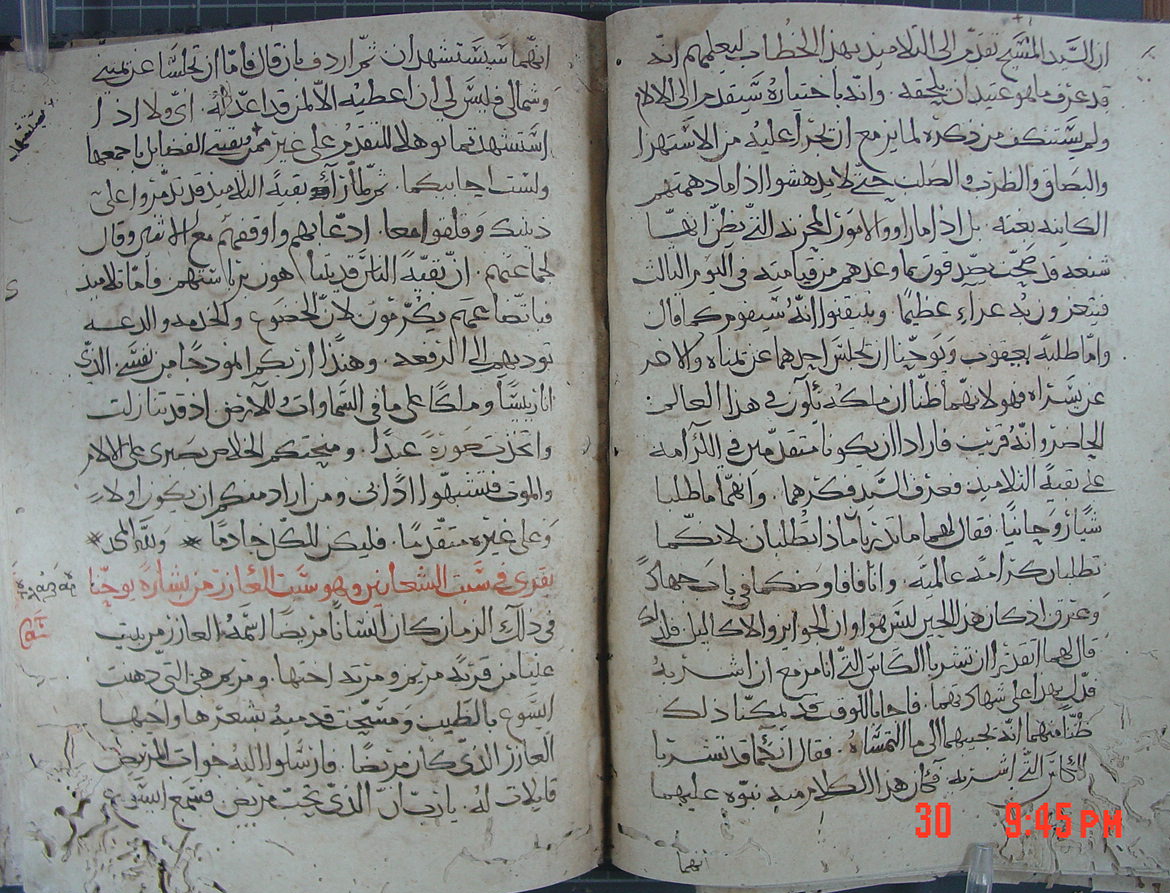 ان السيد المسيح تقدم الى التلاميذ بهذا الخطاب ليعلمهم انه
قد عرف ما هو عتيد ان يلحقه . وانه باختياره سيقدم الى الالام
ولم يستنكف من ذكره لما يزمع ان يجرا عليه من الاستهزا
والبصاق والطرب والصلب حتى لا يدهشوا اذا ما دهمتهم
الكاينه بغته . بل اذا ما راوا الامور المحزنه التي يظن انها
شنعه قد صحت يصدقون بما وعدهم من قيامته في اليوم الثالث
فيتعزون بذ عزاء عظيما . ويتيقنوا انه سيقوم كما قال
واما طلبة يعقوب ويوحنا ان يجلس احدهما عن يمناه والاخر
عن يسراه فهو لانهما ظنا ان ملكه يكون في هذا العالم
الحاضر وانه قريب فارادا ان يكونا متقدمين في الكرامه
على بقية التلاميذ . فعرف السيد فكرهما . وانهما ما طلبا
شيا روحانيا . فقال لهما ما تدريا ماذا تطلبان لانكما
تطلبان كرامه عالميه . وانا فاوضكما في باب جهاد
وعرق اذ كان هذا الحين ليس هو اوان الجوايز والاكاليل فلذلك
قال لهما اتقدرا ان تشربا الكاس التي انا مزمع ان اشربه
فدل بهذا على شهادتهما . فاجابا للوقت قد يمكنا ذلك
ظنا منهما انه يجيبهما الى ما التمساه . فقال انكما قد تشربا
الكاس التي اشربه فكان هذا الكلام منه نبوه عليهما
انهما
انهما سيستشهدان ثم اردف بان قال فاما ان تجلسا عن يميني
وشمالي فليس لي ان اعطيه الا لمن قد اعد له . اي ولا اذا
استشهدتما توهلا للتقدم على غيركم ببقية الفضايل باجمعها
ولست اجابيكما . ثم لما راى بقية التلاميذ قد تذمروا على
ذينك وقلقوا معا . ادعا بهم واوقفهم مع الاثنين وقال
لجماعتهم . ان بقية الناس قد يتباهون برياستهم فاما تلاميذي
فباتضاعهم يكرمون لان الخضوع والخدمه والدعه
توديهم الى الرفعه . وهذا اريكم انموذجا من نفسي الذي
انا رييسا وملكا على ما في السماوات والارض اذ قد تنازلت
واتخذت صورة عبدا . ومنحتكم الخلاص بصبري على الالام
والموت فتشبهوا اذا بي ومن اراد منكم ان يكون اولا
وعلى غيره متقدما . فليكن للكل خادما * ولله المجد *
يقرى في سبت الشعانين وهو سبت العازر من بشارة يوحنا
في ذلك الزمان كان انسانا مريضا اسمه العازر من بيت
عنيا من قرية مريم ومرتا اختها . ومريم هي التي دهنت
ايسوع بالطيب ومسحت قدميه بشعرها واخيها
العازر الذي كان مريضا . فارسلوا اليه خوات المريض
قايلات له . يا رب ان الذي تحب مريض فسمع ايسوع